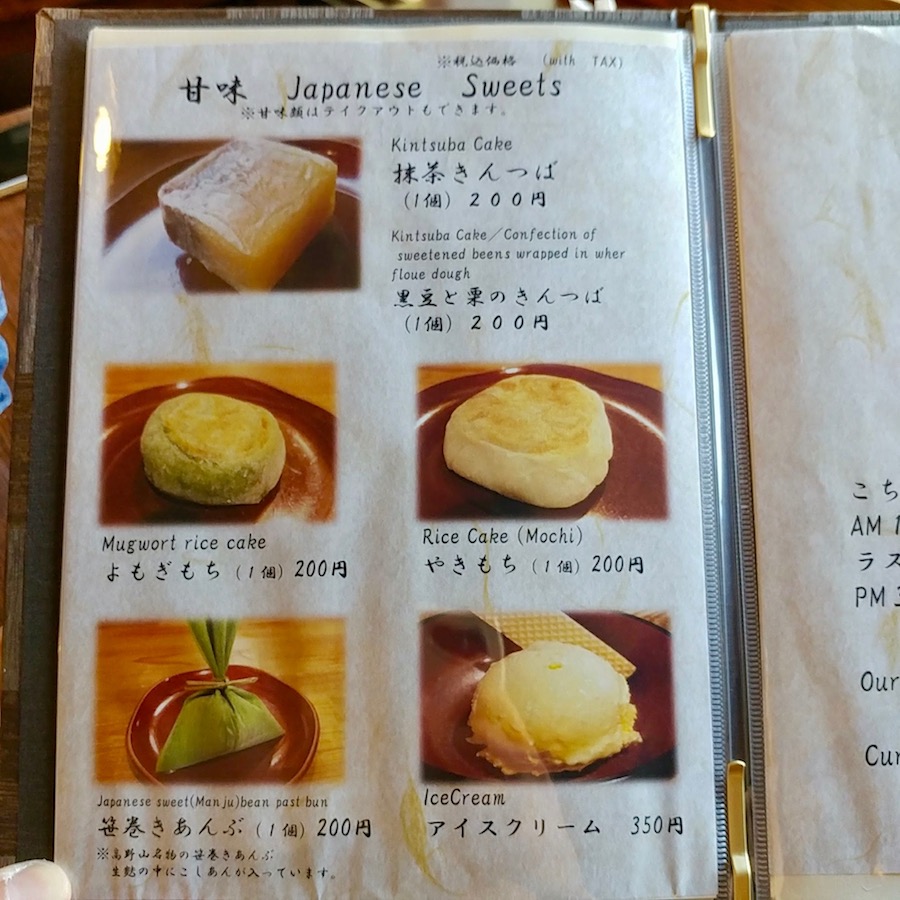 ※税込価格 (with TAX)
甘味 Japanese Sweets
※甘味類はテイクアウトもできます。
Kintsuba Cake
抹茶きんつば
(1個) 200円
Kintsuba Cake/Confection of
sweetened beens wrapped in wher
floue dough
黒豆と栗のきんつば
(1個) 200円
Mugwort rice cake
よもぎもち (1個) 200円
Rice Cake (Mochi)
やきもち (1個) 200円
Japanese sweet(Manju)bean past bun
笹巻きあんぷ (1個) 200円
※高野山名物の笹巻きあんぷ
生麩の中にこしあんが入っています。
IceCream
アイスクリーム 350円
こち
AM 1
ラス
PM 3
Our
Cur